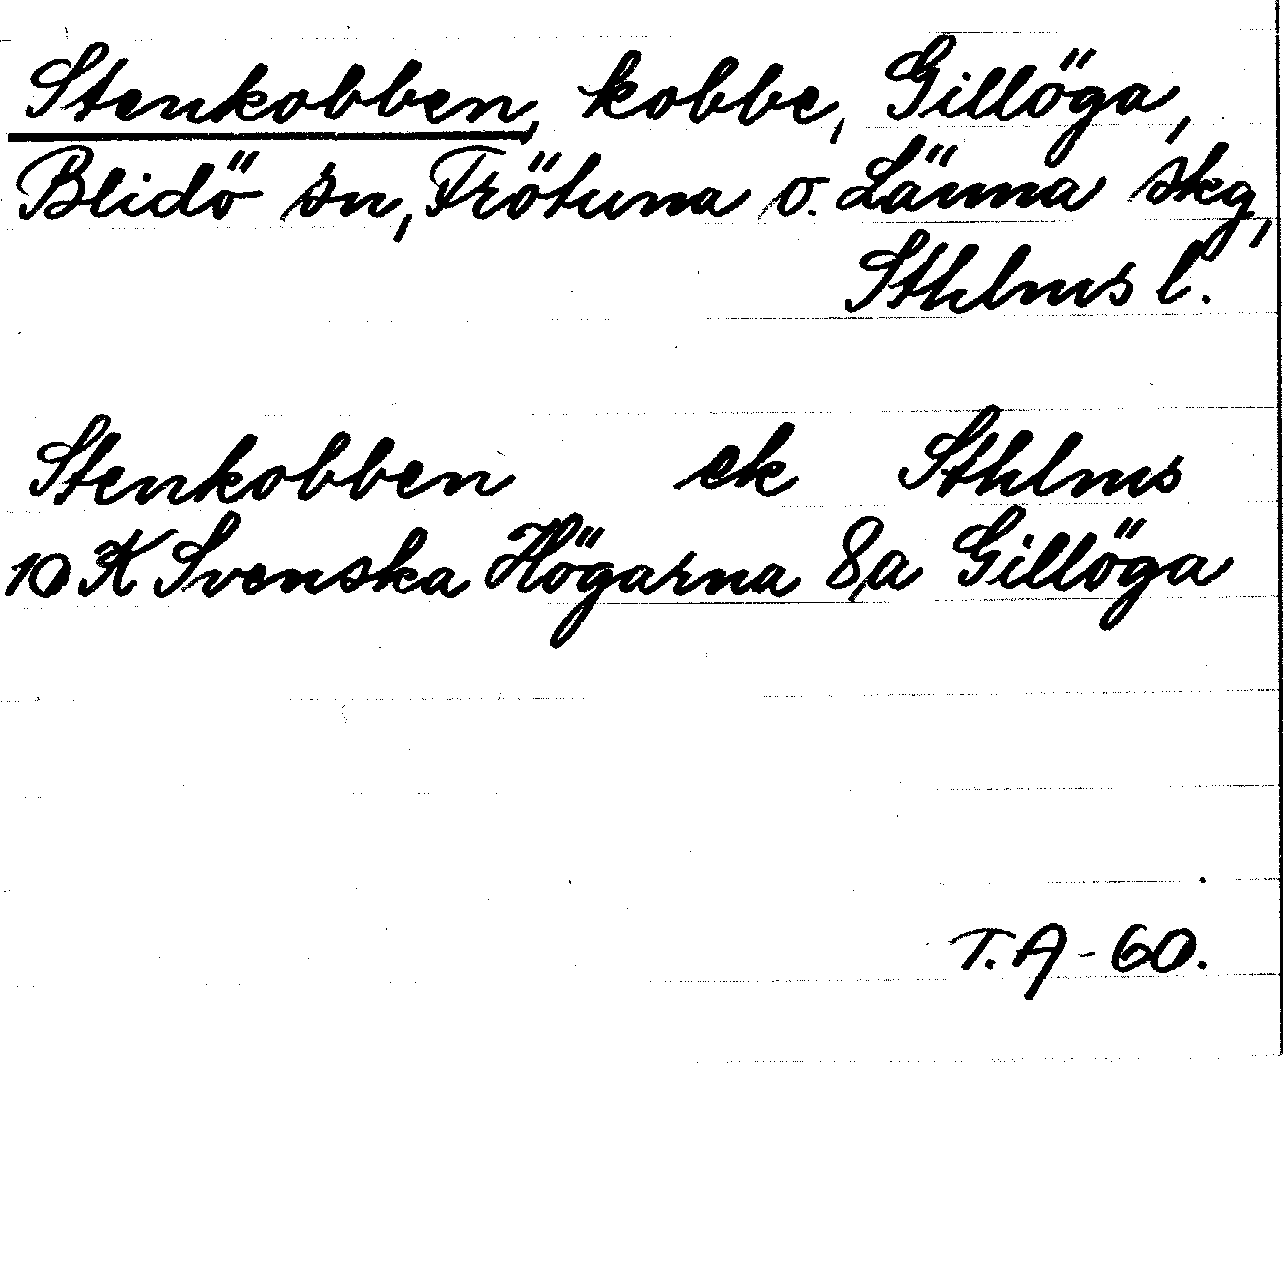 Stenkobben, kobbe, Gillöga,
Blidö sn, Frötuna o. Länna skg,
Sthlms l.
Stenkobben ek Sthlms
10 K Svenska Högarna 8a Gillöga
T.A - 60.